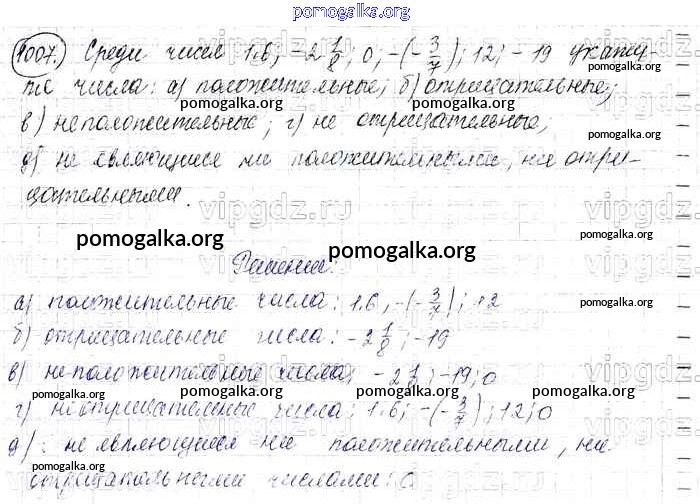 pomogalka.org
1007. Среди чисел 1.6; -2 1/8; 0; -(-3/7); 12; -19 укажи-
те числа: а) положительные; б) отрицательные;
pomogalka.org pomogalka.org pomogalka.org
в) неположительные; г) не отрицательные;
pomogalka.org
д) не являющиеся ни положительными, ни отри-
цательными.
vipgdz.ru vipgdz.ru vipgdz.ru
pomogalka.org pomogalka.org
Решение:
а) положительные числа: 1.6, -(-3/7); 12
pomogalka.org
б) отрицательные числа: -2 1/8; -19
в) неположительные числа; -2 1/8; -19; 0
pomogalka.org pomogalka.org pomogalka.org pomogalka.org
г) неотрицательные числа: 1.6; -(-3/7); 12; 0
vipgdz.ru vipgdz.ru vipgdz.ru
д): не являющиеся ни положительными, ни
pomogalka.org pomogalka.org pomogalka.org
отрицательными числами: 0